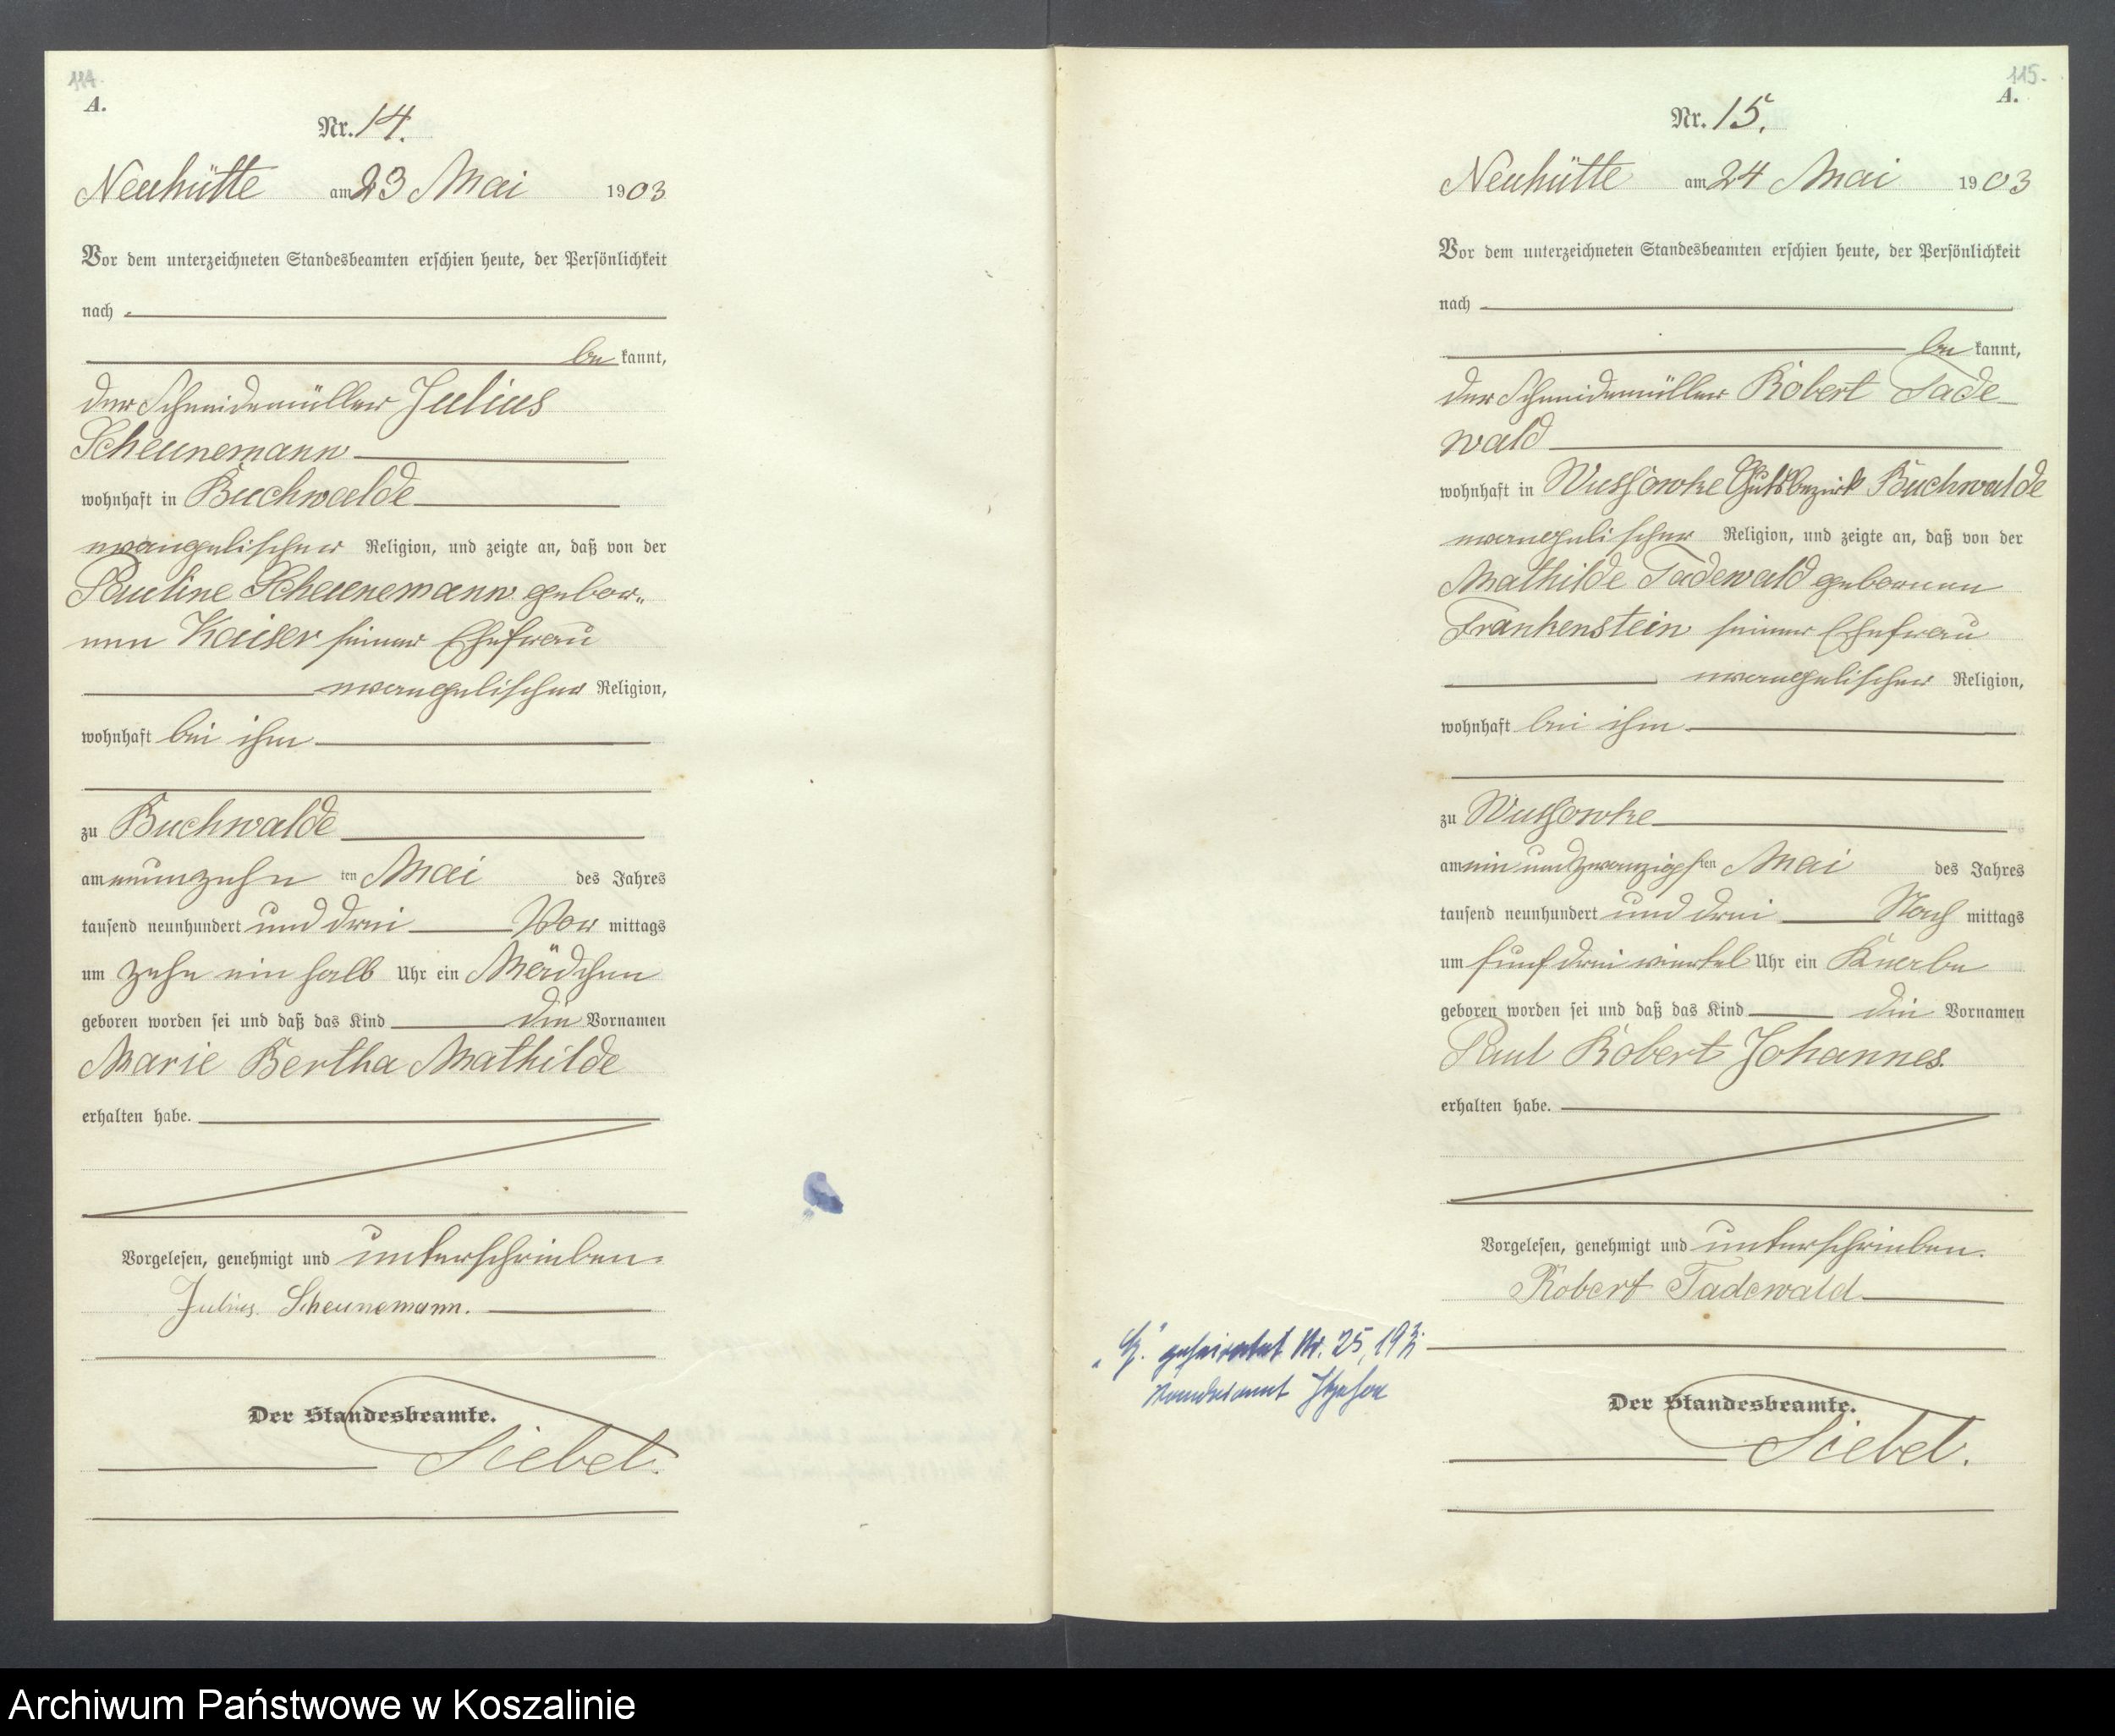 114.
A.
Nr. 14.
Neuhütte am 23 Mai 1903
Vor dem unterzeichneten Standesbeamten erschien heute, der Persönlichkeit
nach
be kannt,
der Schneidemüller Julius
Scheunemann
wohnhaft in Buchwalde
evangelischer Religion, und zeigte an, daß von der
Pauline Scheunemann gebor„
nen Kaiser seiner Ehefrau
evangelischer Religion,
wohnhaft bei ihm
zu Buchwalde
am neunzehn ten Mai des Jahres
tausend neunhundert und drei Vor mittags
um zehn ein halb Uhr ein Mädchen
geboren worden sei und daß das Kind die Vornamen
Marie Bertha Mathilde
erhalten habe.
Vorgelesen, genehmigt und unterschrieben.
Julius Scheunemann.
Der Standesbeamte.
Siebel.
115.
A.
Nr. 15.
Neuhütte am 24 Mai 1903
Vor dem unterzeichneten Standesbeamten erschien heute, der Persönlichkeit
nach
be kannt,
der Schneidemüller Robert Tade-
wald
wohnhaft in Wussowke Gutsbezirk Buchwalde
evangelischer Religion, und zeigte an, daß von der
Mathilde Tadewald geborenen
Frankenstein seiner Ehefrau
evangelischer Religion,
wohnhaft bei ihm
zu Wussowke
am ein und zwanzigsten Mai des Jahres
tausend neunhundert und drei Nach mittags
um fünf drei viertel Uhr ein Knabe
geboren worden sei und daß das Kind die Vornamen
Paul Robert Johannes.
erhalten habe.
Vorgelesen, genehmigt und unterschrieben.
Robert Tadewald
geheiratet Nr. 25,
Standesamt
Der Standesbeamte.
Siebel.
Archiwum Państwowe w Koszalinie